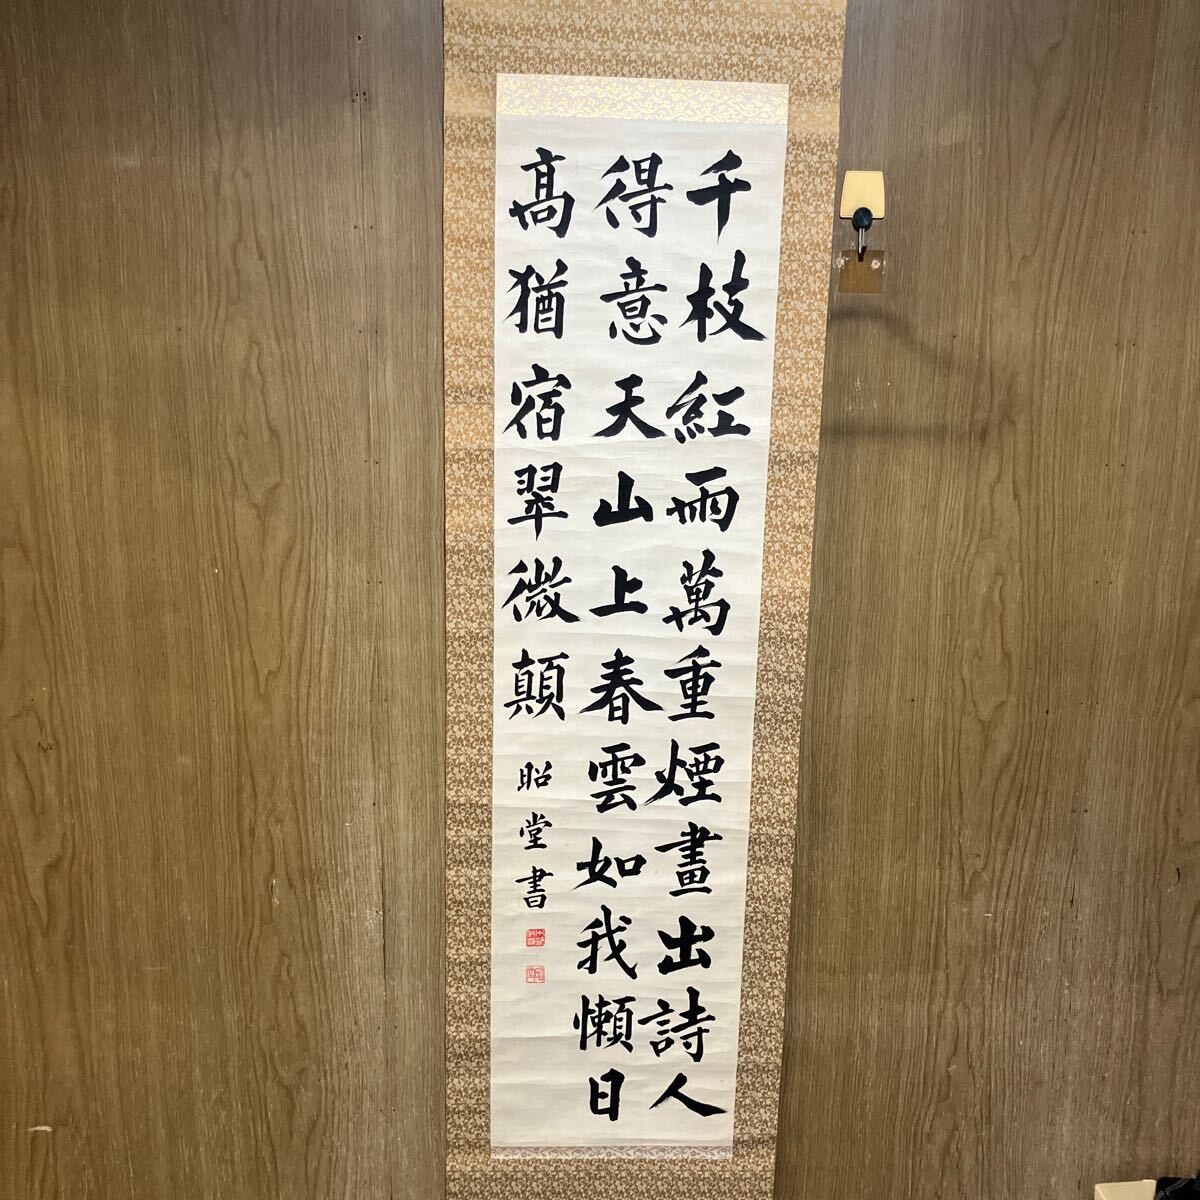 千枝紅雨萬重煙畫出詩人
得意天山上春雲如我懶日
髙猶宿翠微顛
昭堂書